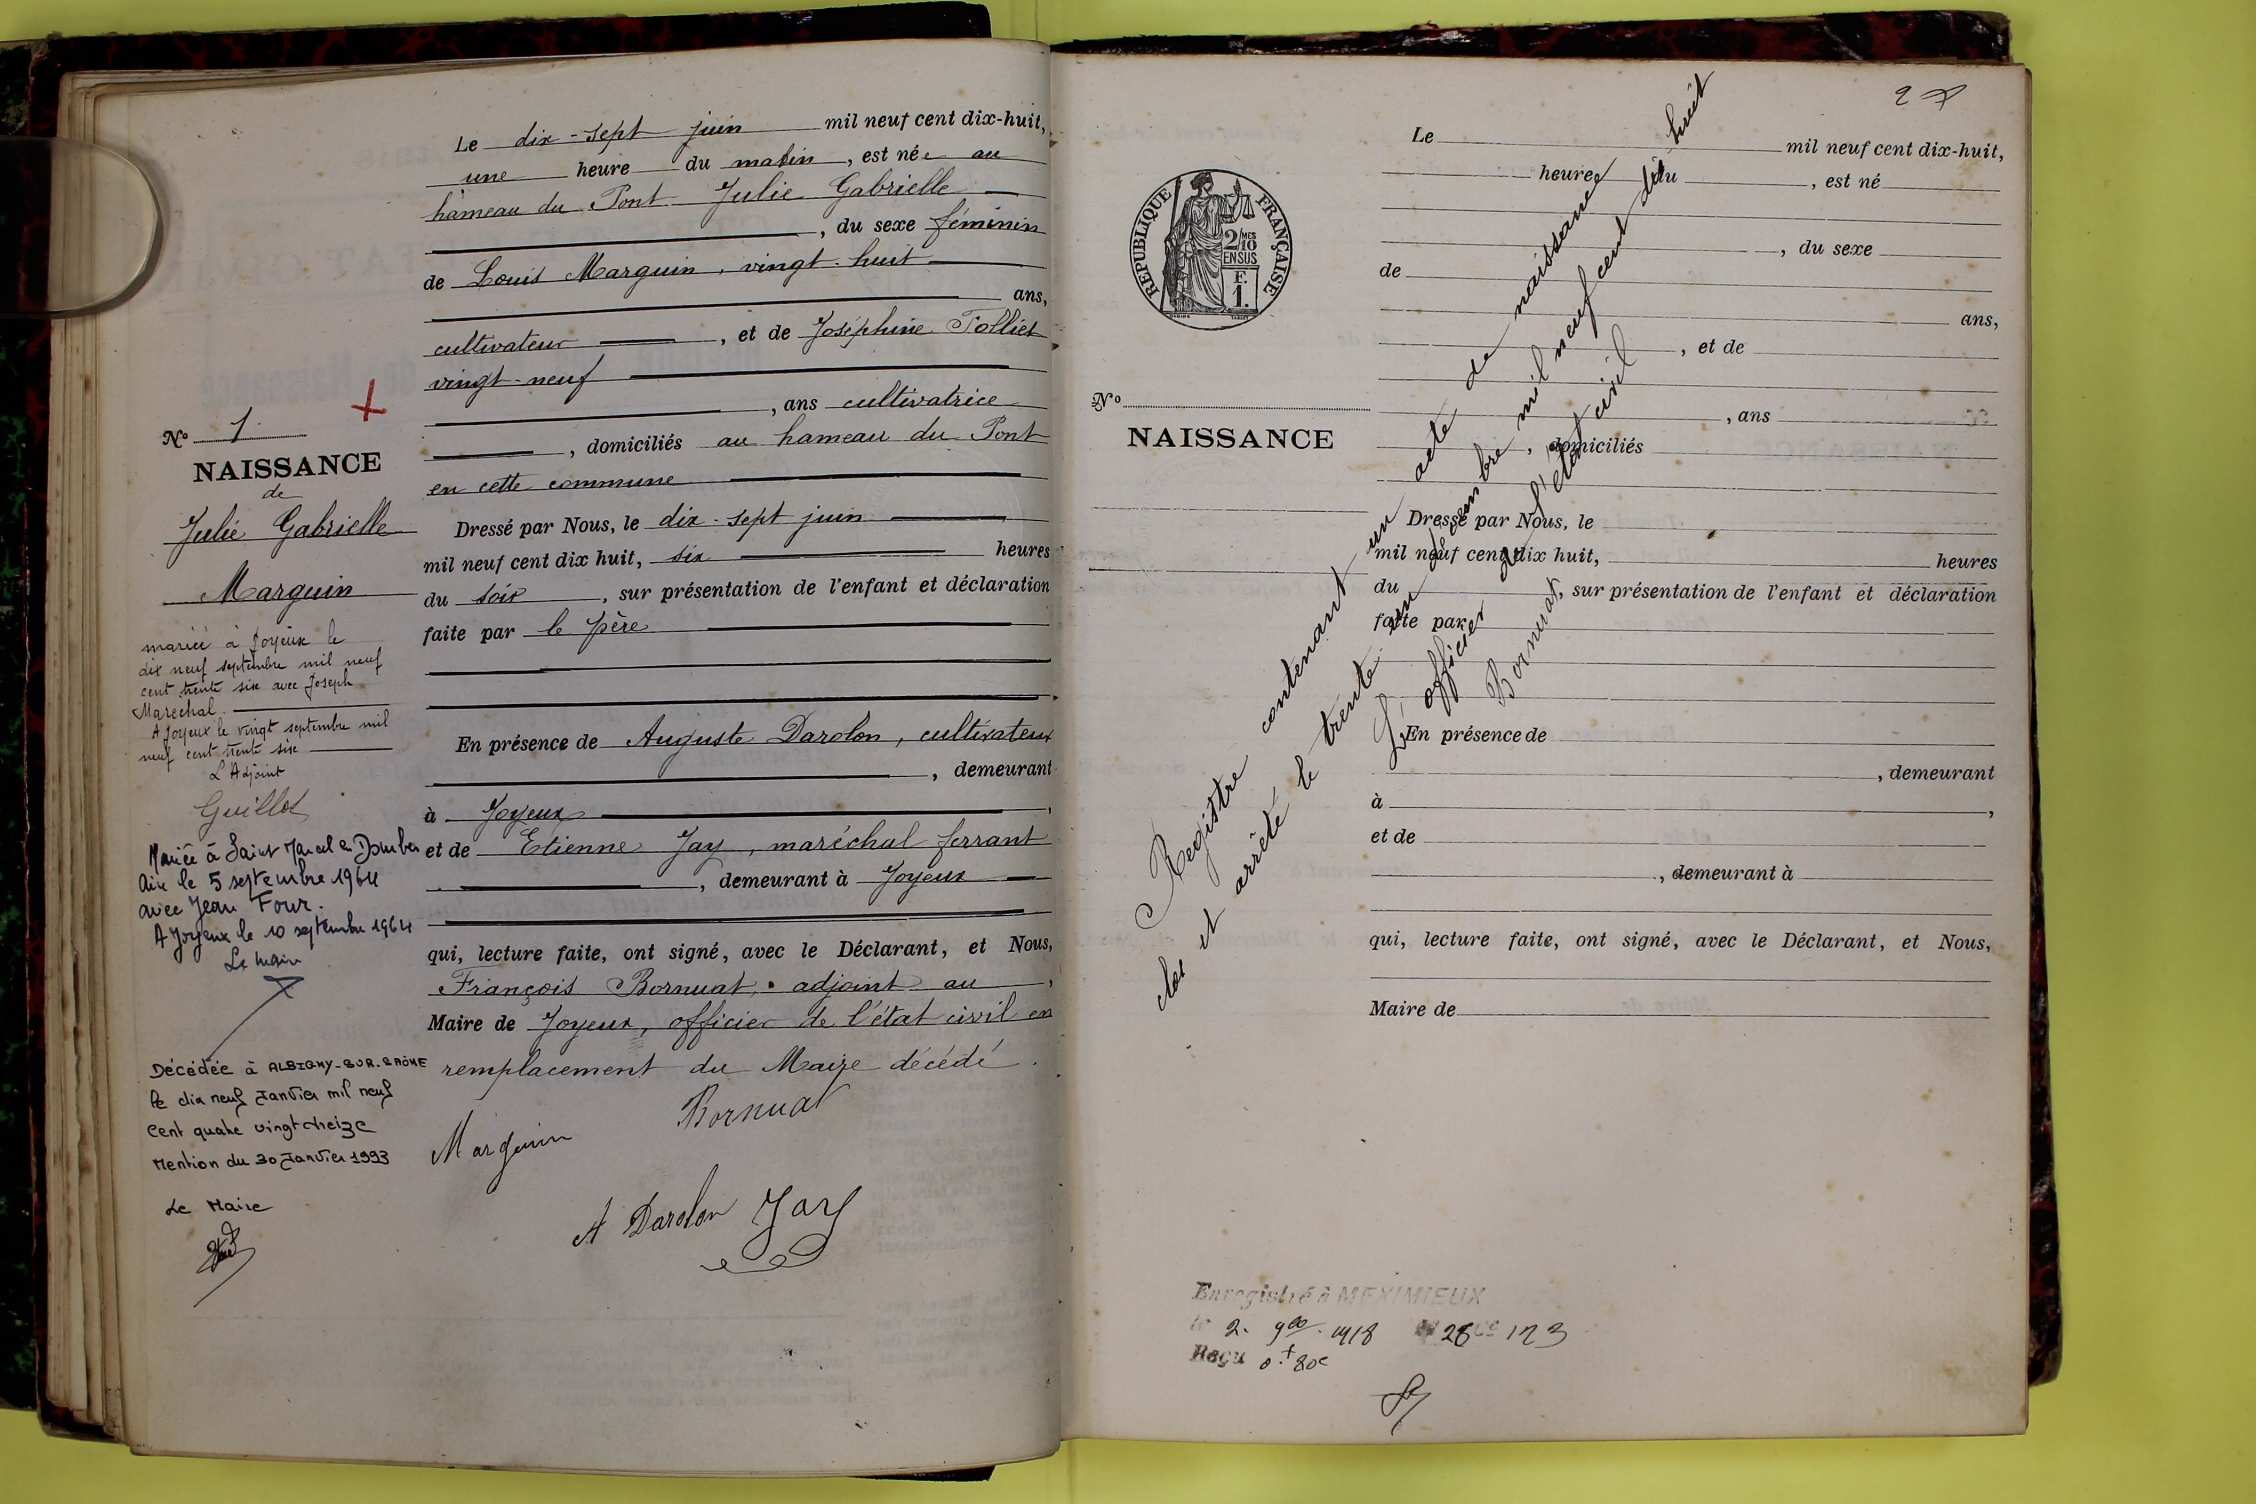 Le dix-sept juin mil neuf cent dix-huit,
une heure du matin, est née au
hameau du Pont Julie Gabrielle
, du sexe féminin
de Louis Marguin, vingt-huit
ans,
cultivateur, et de Joséphine Tolliet
vingt-neuf
, ans cultivatrice
, domiciliés au hameau du Pont
en cette commune
Dressé par Nous, le dix-sept juin
mil neuf cent dix huit, six heures
du soir, sur présentation de l'enfant et déclaration
faite par le père
En présence de Auguste Darolon, cultivateur
, demeurant
à Joyeux,
et de Etienne Jay, maréchal ferrant
, demeurant à Joyeux
qui, lecture faite, ont signé, avec le Déclarant, et Nous,
François Bornuat, adjoint au,
Maire de Joyeux, officier de l'état civil en
remplacement du Maire décédé.
Bornuat
Marguin
A Darolon Jay
No 1.
NAISSANCE
de
Julie Gabrielle
Marguin
mariée à Joyeux le
dix neuf septembre mil neuf
cent trente six avec Joseph
Maréchal.
A Joyeux le vingt septembre mil
neuf cent trente six
L'Adjoint
Guillot
Mariée à Saint Marcel en Dombes
Ain le 5 septembre 1964
avec Jean Four.
A Joyeux le 10 septembre 1964
Le Maire
Décédée à ALBIGNY-SUR-SAÔNE
le dix neuf Janvier mil neuf
cent quatre vingt treize
Mention du 30 Janvier 1993
Le Maire
27
RÉPUBLIQUE FRANÇAISE
2/10 MES
EN SUS
F.
1.
No
NAISSANCE
Le mil neuf cent dix-huit,
heure du, est né
, du sexe
de
ans,
, et de
, ans
, domiciliés
Dressé par Nous, le
mil neuf cent dix huit, heures
du, sur présentation de l'enfant et déclaration
faite par
En présence de
, demeurant
à,
et de
, demeurant à
qui, lecture faite, ont signé, avec le Déclarant, et Nous,
Maire de
Registre contenant un acte de naissance
clos et arrêté le trente un décembre mil neuf cent dix huit
L'officier de l'état civil
Bornuat
Enregistré à MEXIMIEUX
le 2. 1918 28 Ce 123
Reçu 0f 80c